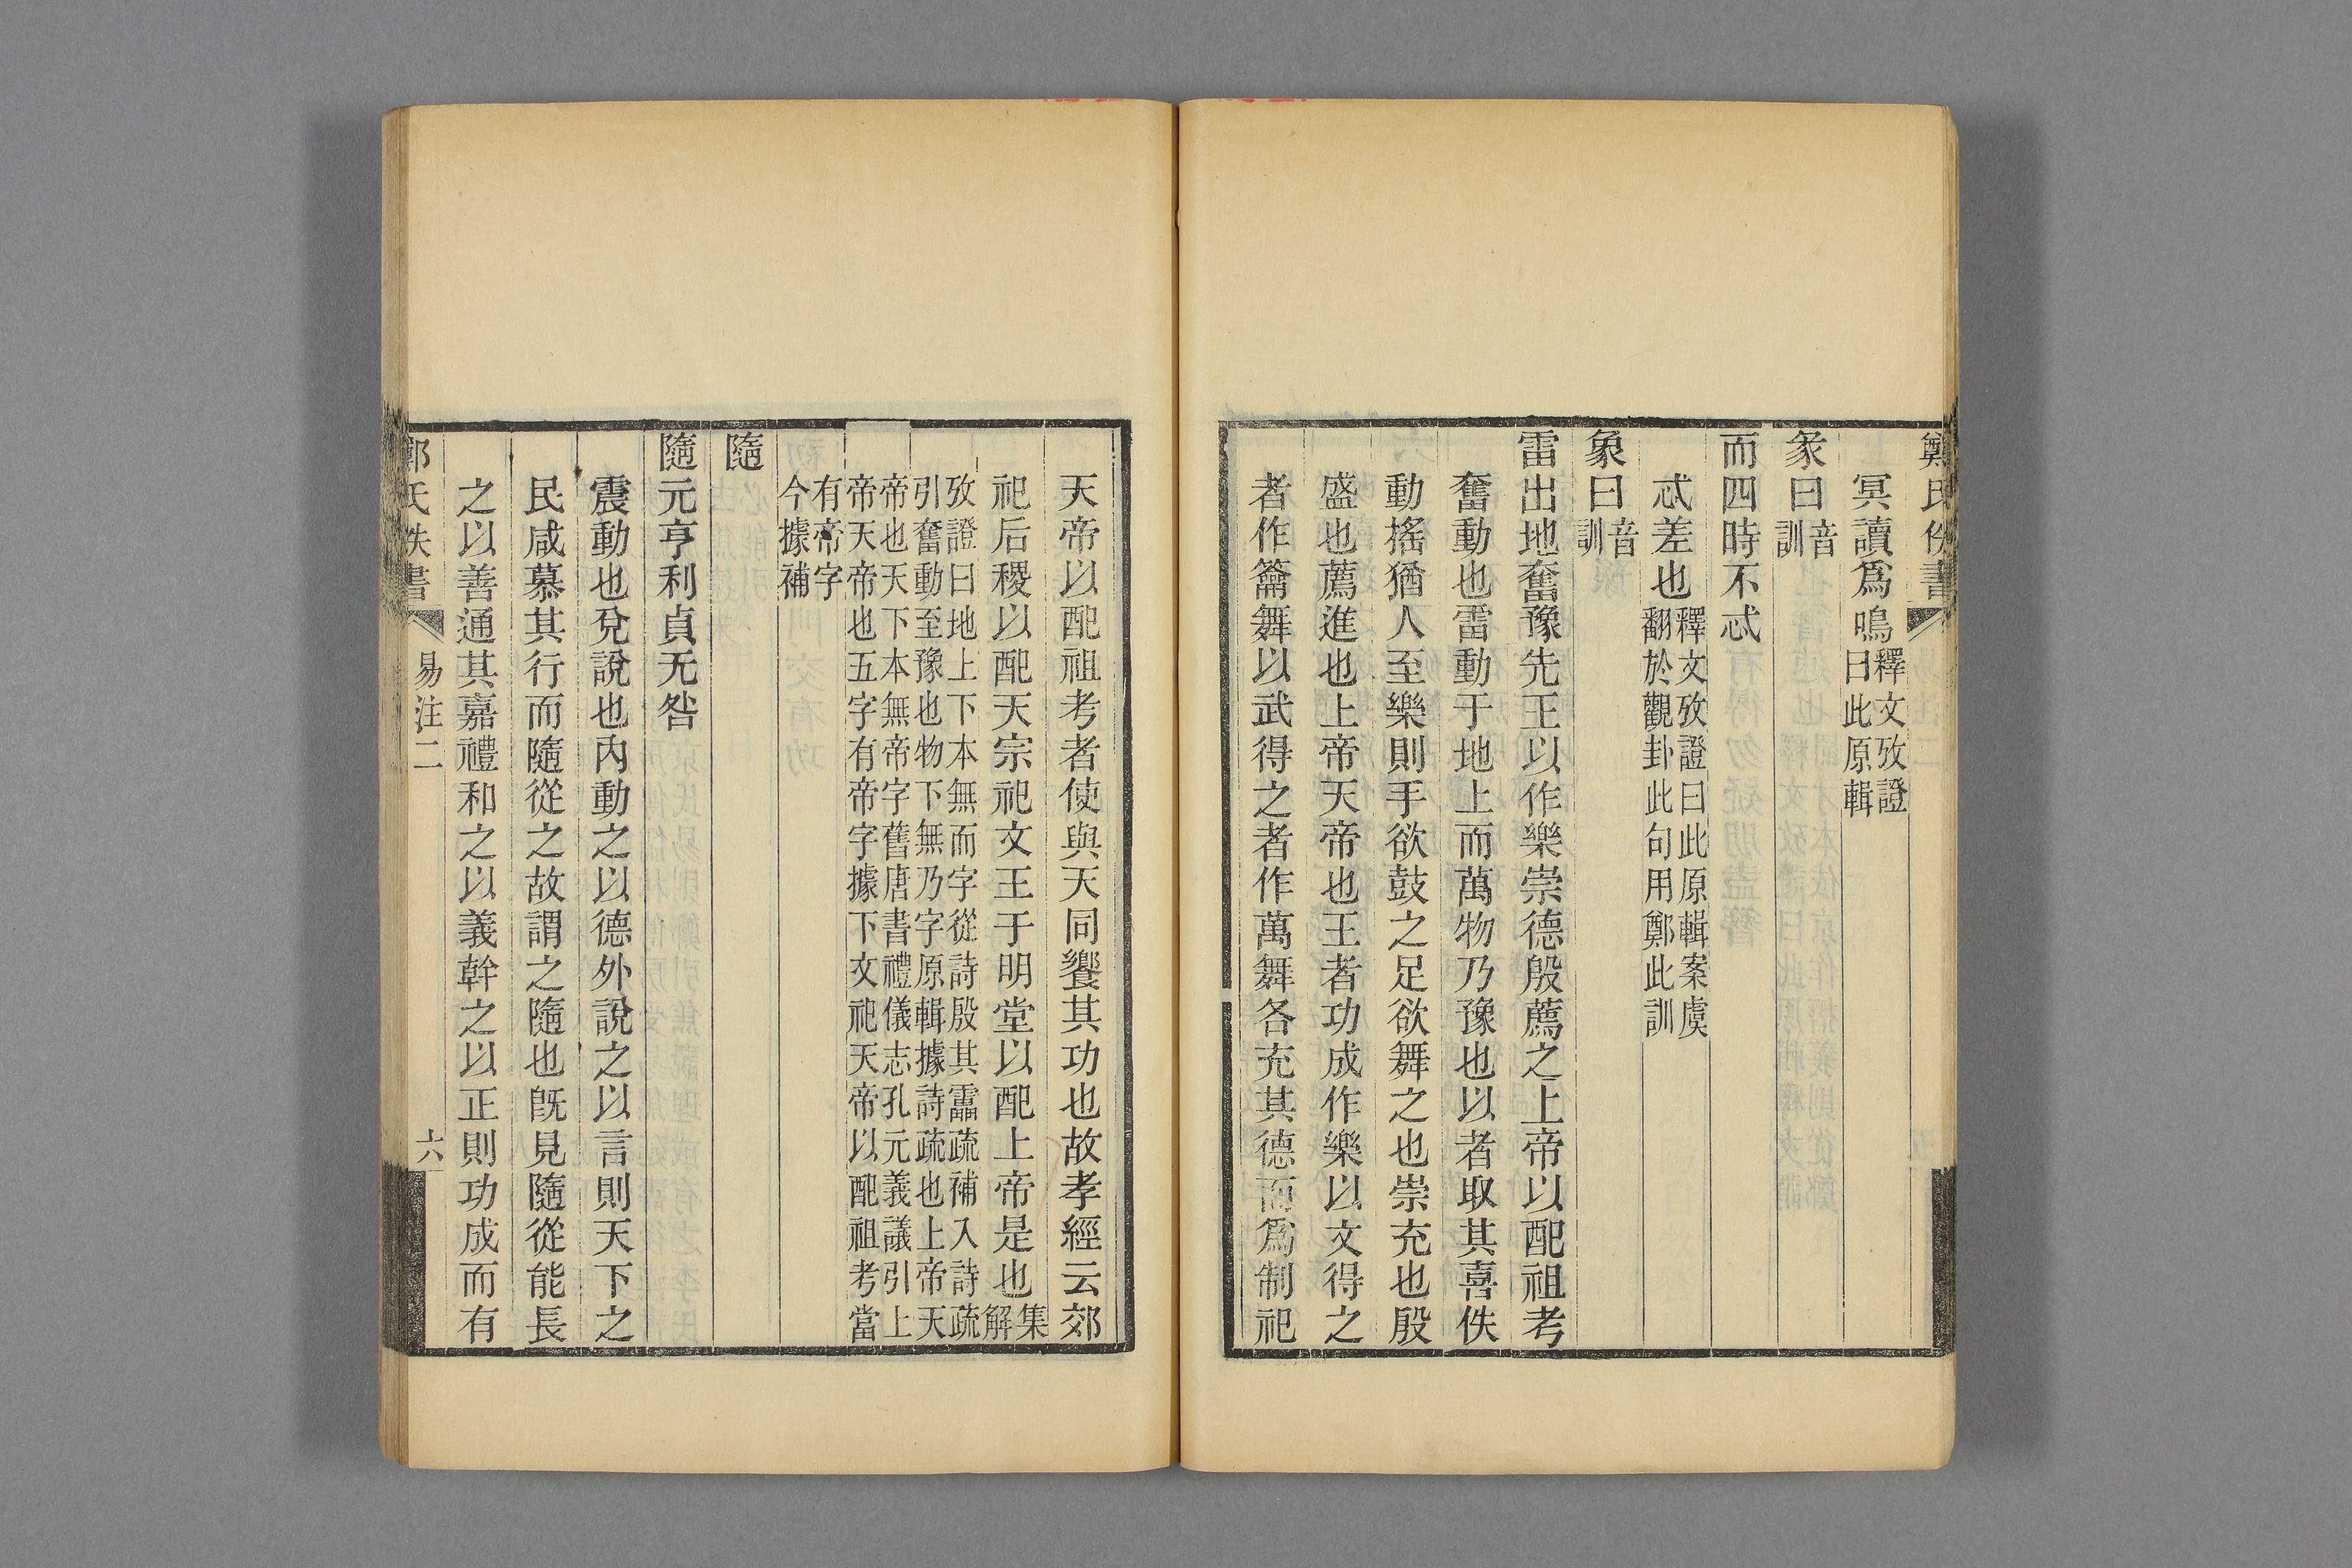 鄭氏佚書
冥讀爲鳴釋文攷證曰此原輯
彖曰音訓
而四時不忒
忒差也釋文攷證曰此原輯案虞翻於觀卦此句用鄭此訓
象曰音訓
雷出地奮豫先王以作樂崇德殷薦之上帝以配祖考
奮動也雷動于地上而萬物乃豫也以者取其喜佚
動搖猶人至樂則手欲鼓之足欲舞之也崇充也殷
盛也薦進也上帝天帝也王者功成作樂以文得之
者作籥舞以武得之者作萬舞各充其德而爲制祀
天帝以配祖考者使與天同饗其功也故孝經云郊
祀后稷以配天宗祀文王于明堂以配上帝是也集解
攷證曰地上下本無而字從詩殷其靁疏補入詩疏
引奮動至豫也物下無乃字原輯據詩疏也上帝天
帝也天下本無帝字舊唐書禮儀志孔元義議引上
帝天帝也五字有帝字據下文祀天帝以配祖考當
有帝字
今據補
隨
隨元亨利貞无咎
震動也兌說也內動之以德外說之以言則天下之
民咸慕其行而隨從之故謂之隨也旣見隨從能長
之以善通其嘉禮和之以義幹之以正則功成而有
鄭氏佚書
易注二
六